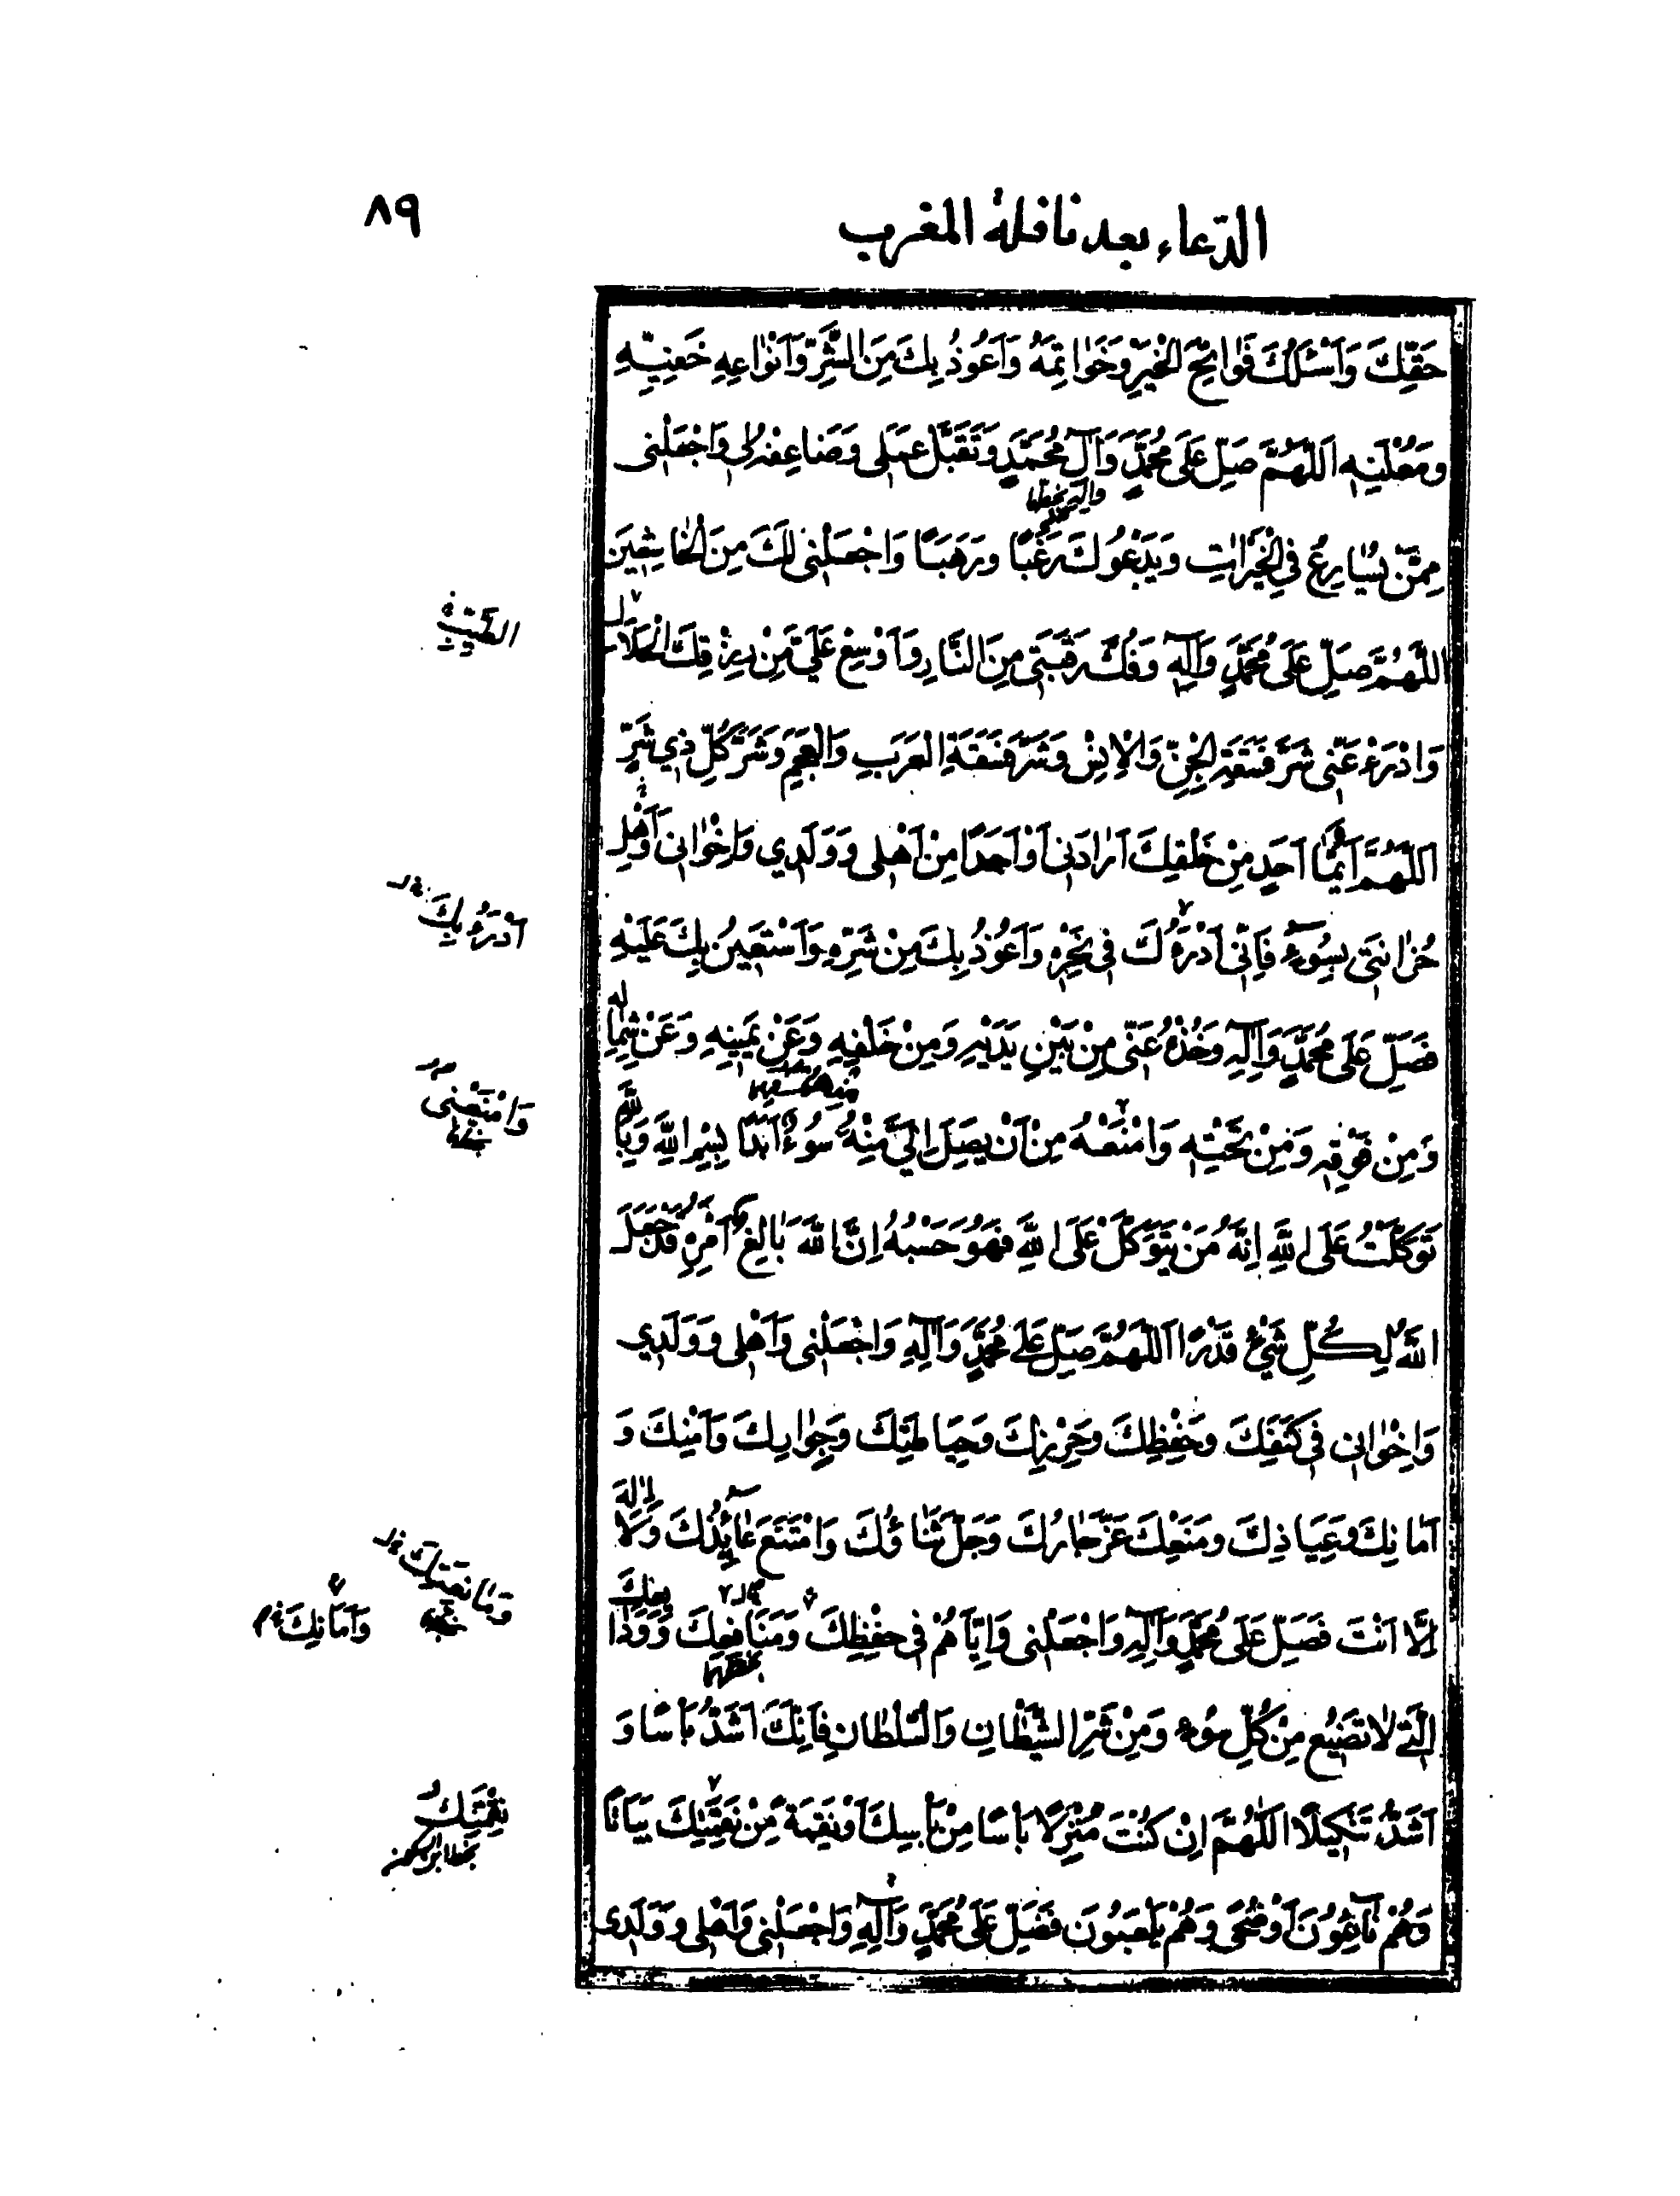 الدّعاء بعد نافلة المغرب
٨٩
حَقِّكَ وَاَسْئَلُكَ فَوٰاتِحَ الْخَيْرِ وَخَوٰاتِمَهُ وَاَعُوذُ بِكَ مِنَ الشَّرِّ وَاَنْوٰاعِهِ خَفِيِّهِ
وَمُعْلَنِهِ اَللّٰهُمَّ صَلِّ عَلَى مُحَمَّدٍ وَآلِ مُحَمَّدٍ وَتَقَبَّلْ عَمَلِى وَضَاعِفْهُ لِى وَاجْعَلْنِى
مِمَّنْ يُسٰارِعُ فِى الْخَيْرٰاتِ وَيَدْعُوكَ رَغَبًا وَرَهَبًا وَاجْعَلْنِى لَكَ مِنَ الْخٰاشِعِينَ
اللّٰهُمَّ صَلِّ عَلَى مُحَمَّدٍ وَآلِهِ وَفُكَّ رَقَبَتِى مِنَ النَّارِ وَاَوْسِعْ عَلَيَّ مِنْ رِزْقِكَ الْحَلَالِ
الطَيِّبِ
وَادْرَءْ عَنِّى شَرَّ فَسَقَةِ الْجِنِّ وَالْاِنْسِ وَشَرَّ فَسَقَةِ الْعَرَبِ وَالْعَجَمِ وَشَرَّ كُلِّ ذِي شَرٍّ
اَللّٰهُمَّ اَيُّمٰا اَحَدٍ مِنْ خَلْقِكَ اَرٰادَنِى اَوْ اَحَدًا مِنْ اَهْلِى وَوَلَدِي وَاِخْوٰانِى وَاَهْلِ
حُزٰانَتِى بِسُوءٍ فَاِنِّى اَدْرَؤُكَ فِى نَحْرِهِ وَاَعُوذُ بِكَ مِنْ شَرِّهِ وَاَسْتَعِينُ بِكَ عَلَيْهِ
اَدْرَءُ بِكَ
فَصَلِّ عَلَى مُحَمَّدٍ وَآلِهِ وَخُذْهُ عَنِّى مِنْ بَيْنِ يَدَيْهِ وَمِنْ خَلْفِهِ وَعَنْ يَمِينِهِ وَعَنْ شِمٰالِهِ
وَمِنْ فَوْقِهِ وَمِنْ تَحْتِهِ وَامْنَعْهُ مِنْ اَنْ يَصِلَ اِلَيَّ مِنْهُ سُوءٌ اَبَدًا بِسْمِ اللّٰهِ وَبِاللّٰهِ
وَامْنَعْنِى
تَوَكَّلْتُ عَلَى اللّٰهِ اِنَّهُ مَنْ يَتَوَكَّلْ عَلَى اللّٰهِ فَهُوَ حَسْبُهُ اِنَّ اللّٰهَ بٰالِغُ اَمْرِهِ قَدْ جَعَلَ
اللّٰهُ لِكُلِّ شَيْءٍ قَدْرًا اَللّٰهُمَّ صَلِّ عَلَى مُحَمَّدٍ وَآلِهِ وَاجْعَلْنِى وَاَهْلِى وَوَلَدِي
وَاِخْوٰانِى فِى كَنَفِكَ وَحِفْظِكَ وَحِرْزِكَ وَحِيَاطَتِكَ وَجِوٰارِكَ وَاَمْنِكَ وَ
اَمٰانِكَ وَعِيَاذِكَ وَمَنْعِكَ عَزَّ جٰارُكَ وَجَلَّ ثَنٰاؤُكَ وَامْتَنَعَ عٰائِذُكَ وَلَا اِلٰهَ
اِلَّا اَنْتَ فَصَلِّ عَلَى مُحَمَّدٍ وَآلِهِ وَاجْعَلْنِى وَاِيَّاهُمْ فِى حِفْظِكَ وَمَنَافِعِكَ وَوَدَائِعِكَ
وَمٰانَعَتِكَ
وَاَمَانِكَ
الَّتِى لٰا تَضِيعُ مِنْ كُلِّ سُوءٍ وَمِنْ شَرِّ الشَّيْطٰانِ وَالسُّلْطٰانِ فَاِنَّكَ اَشَدُّ بَاْسًا وَ
اَشَدُّ تَنْكِيلًا اَللّٰهُمَّ اِنْ كُنْتَ مُنْزِلًا بَاْسًا مِنْ بَاْسِكَ اَوْ نَقِمَةً مِنْ نَقِمَتِكَ بَيَاتًا
نِقْمَتِكَ
وَهُمْ نَآئِمُونَ اَوْ ضُحًى وَهُمْ يَلْعَبُونَ فَصَلِّ عَلَى مُحَمَّدٍ وَآلِهِ وَاجْعَلْنِى وَاَهْلِى وَوَلَدِى